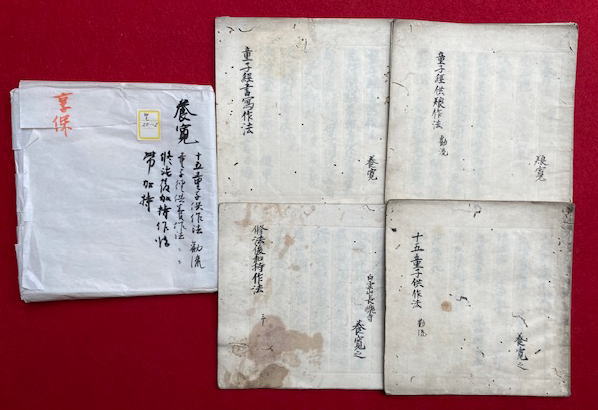 享保
養寛
十五童子供作法 勧流
童子経供養作法 〃
修法後加持作法
帯加持
童子経書寫作法
養寛
童子経供養作法 勧流
養寛
修法後加持作法
白雲山長樂寺
養寛之
十五童子供作法 勧流
養寛之